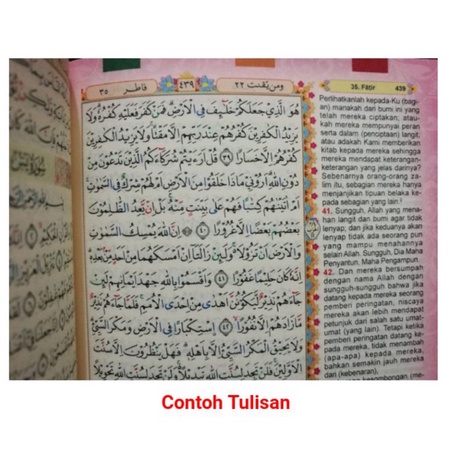 ومن يقنت ٢٢
٤٣٩
فاطر ٣٥
هُوَ الَّذِيْ جَعَلَكُمْ خَلٰۤىِٕفَ فِى الْاَرْضِۗ فَمَنْ كَفَرَ فَعَلَيْهِ كُفْرُهٗۗ وَلَا
يَزِيْدُ الْكٰفِرِيْنَ كُفْرُهُمْ عِنْدَ رَبِّهِمْ اِلَّا مَقْتًاۚ وَلَا يَزِيْدُ الْكٰفِرِيْنَ
كُفْرُهُمْ اِلَّا خَسَارًا ۝٣٩ قُلْ اَرَءَيْتُمْ شُرَكَاۤءَكُمُ الَّذِيْنَ تَدْعُوْنَ مِنْ
دُوْنِ اللّٰهِۗ اَرُوْنِيْ مَاذَا خَلَقُوْا مِنَ الْاَرْضِ اَمْ لَهُمْ شِرْكٌ فِى السَّمٰوٰتِۚ
اَمْ اٰتَيْنٰهُمْ كِتٰبًا فَهُمْ عَلٰى بَيِّنَتٍ مِّنْهُۚ بَلْ اِنْ يَّعِدُ الظّٰلِمُوْنَ
بَعْضُهُمْ بَعْضًا اِلَّا غُرُوْرًا ۝٤٠ اِنَّ اللّٰهَ يُمْسِكُ السَّمٰوٰتِ
وَالْاَرْضَ اَنْ تَزُوْلَا ەۚ وَلَىِٕنْ زَالَتَآ اِنْ اَمْسَكَهُمَا مِنْ اَحَدٍ مِّنْۢ بَعْدِهٖۗ
اِنَّهٗ كَانَ حَلِيْمًا غَفُوْرًا ۝٤١ وَاَقْسَمُوْا بِاللّٰهِ جَهْدَ اَيْمَانِهِمْ لَىِٕنْ
جَاۤءَهُمْ نَذِيْرٌ لَّيَكُوْنُنَّ اَهْدٰى مِنْ اِحْدَى الْاُمَمِۚ فَلَمَّا جَاۤءَهُمْ نَذِيْرٌ
مَّا زَادَهُمْ اِلَّا نُفُوْرًاۙ ۝٤٢ اِسْتِكْبَارًا فِى الْاَرْضِ وَمَكْرَ السَّيِّئِۗ
وَلَا يَحِيْقُ الْمَكْرُ السَّيِّئُ اِلَّا بِاَهْلِهٖۗ فَهَلْ يَنْظُرُوْنَ اِلَّا سُنَّتَ
الْاَوَّلِيْنَۚ فَلَنْ تَجِدَ لِسُنَّتِ اللّٰهِ تَبْدِيْلًا ەۚ وَلَنْ تَجِدَ لِسُنَّتِ اللّٰهِ تَحْوِيْلًا
35. Fatir 439
Perlihatkanlah kepada-Ku (bagi-
an) manakah dari bumi ini yang
telah mereka ciptakan; atau-
kah mereka mempunyai peran
serta dalam (penciptaan) langit;
atau adakah Kami memberikan
kitab kepada mereka sehingga
mereka mendapat keterangan-
keterangan yang jelas darinya?
Sebenarnya orang-orang za-
lim itu, sebagian mereka hanya
menjanjikan tipuan belaka ke-
pada sebagian yang lain.
41. Sungguh, Allah yang mena-
han langit dan bumi agar tidak
lenyap; dan jika keduanya akan
lenyap tidak ada seorang pun
yang mampu menahannya
selain Allah. Sungguh, Dia Maha
Penyantun, Maha Pengampun.
42. Dan mereka bersumpah
dengan nama Allah dengan
sungguh-sungguh bahwa jika
datang kepada mereka seorang
pemberi peringatan, niscaya
mereka akan lebih mendapat
petunjuk dari salah satu umat-
umat (yang lain). Tetapi ketika
pemberi peringatan datang ke-
pada mereka, tidak menambah
(apa-apa) kepada mereka,
bahkan semakin jauh mereka
dari (kebenaran),
Contoh Tulisan